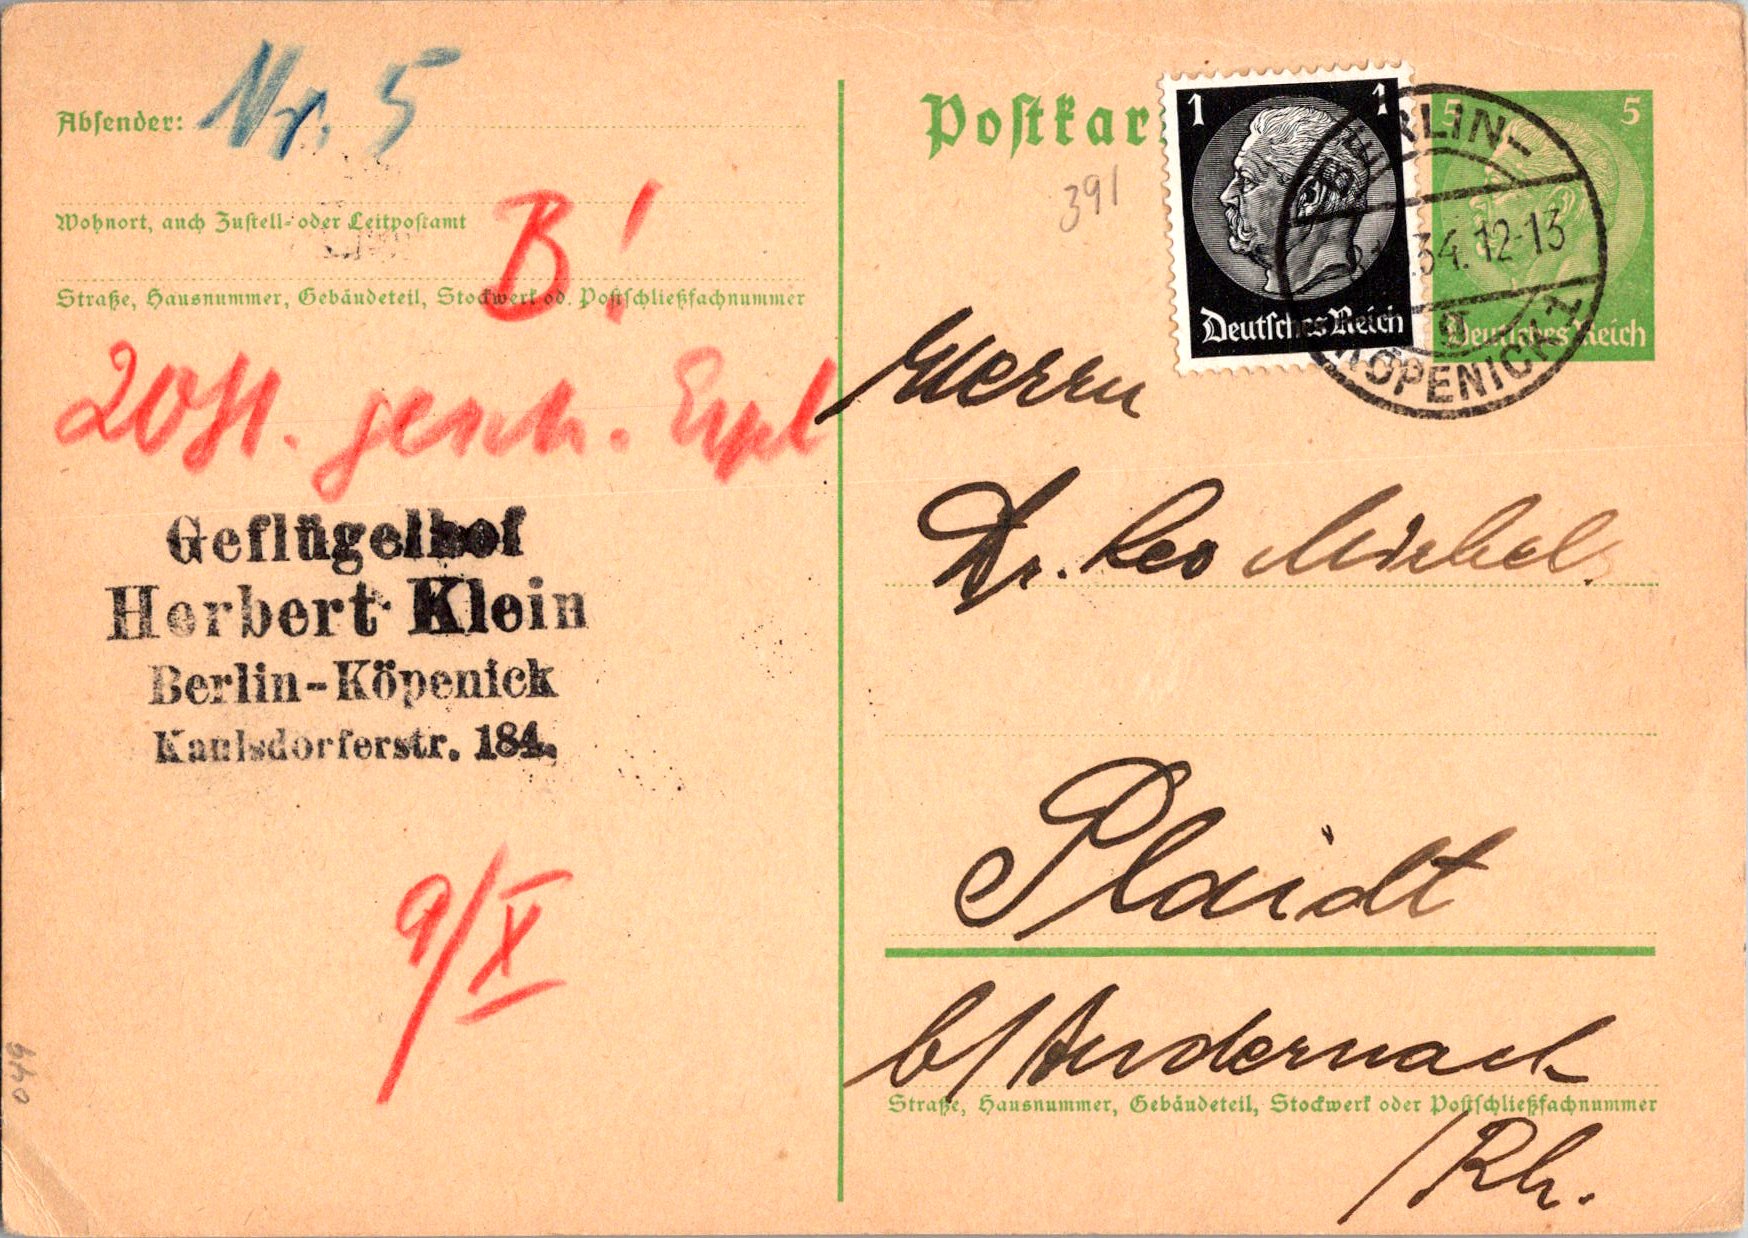 Absender: Nr. 5
Wohnort, auch Zustell- oder Leitpostamt
B!
Straße, Hausnummer, Gebäudeteil, Stockwerk od. Postschließfachnummer
gesch.
Geflügelhof
Herbert Klein
Berlin-Köpenick
Kaulsdorferstr. 184.
9/X
049
Postkar
391
1 1
Deutsches Reich
5 5
Deutsches Reich
BERLIN-
34. 12-13
KÖPENICK 1
Herrn
Dr. Leo Michel.
Plaidt
b/Andernach
Straße, Hausnummer, Gebäudeteil, Stockwerk oder Postschließfachnummer
/Rh.